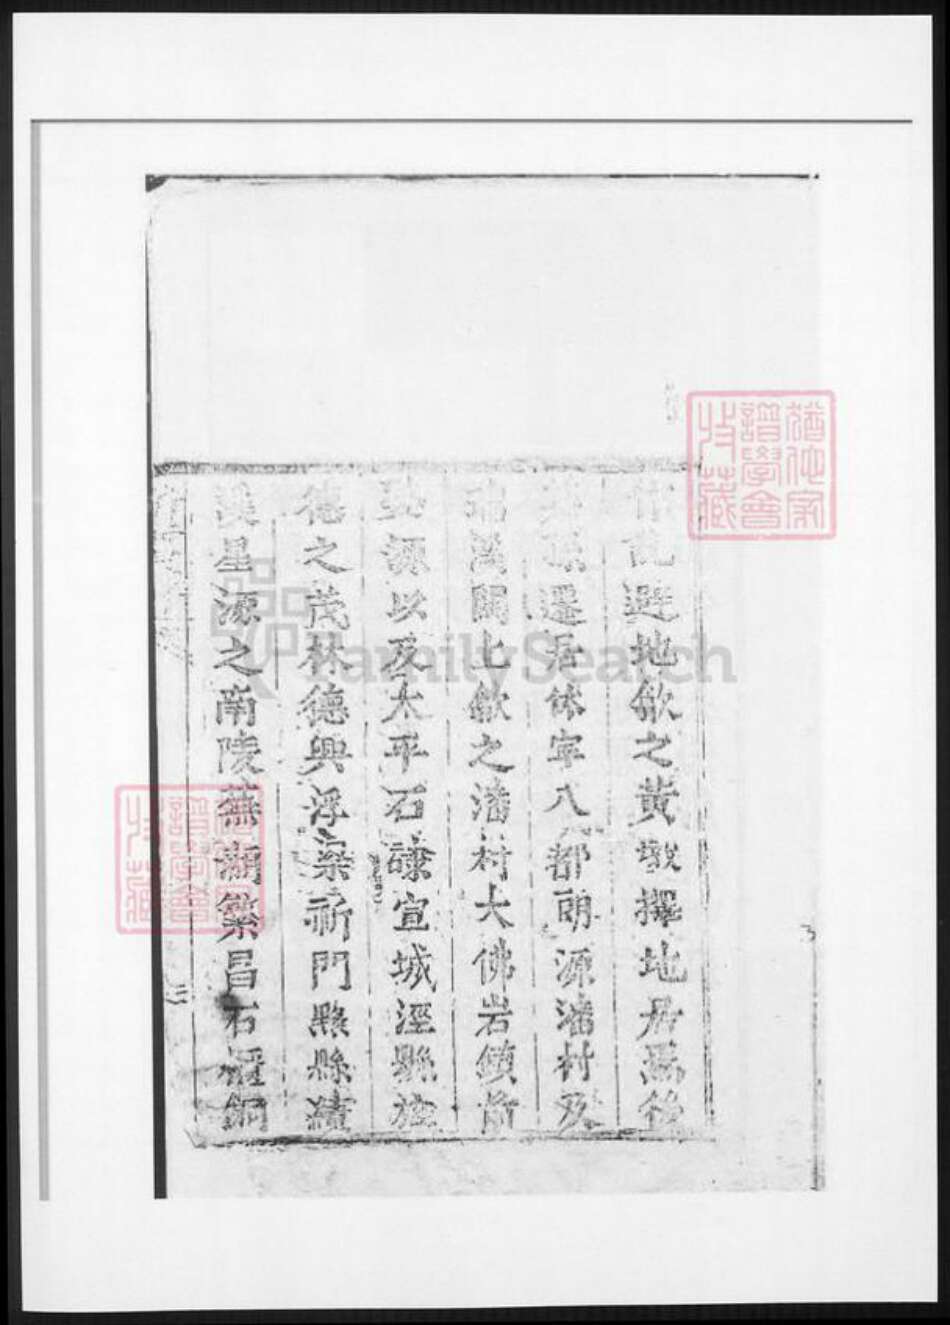 避地歙之黄墩擇地居焉後
遷居休寧八都朗源潘村及
瑞溪關上歙之潘村大佛岩鎮前
源以及太平石磏宣城涇縣旌
德之茂林德興浮梁祈門縣縣績
溪星源之南陵蕪湖繁昌石埭銅
譜學會
收藏
FamilySearch
譜學會
收藏